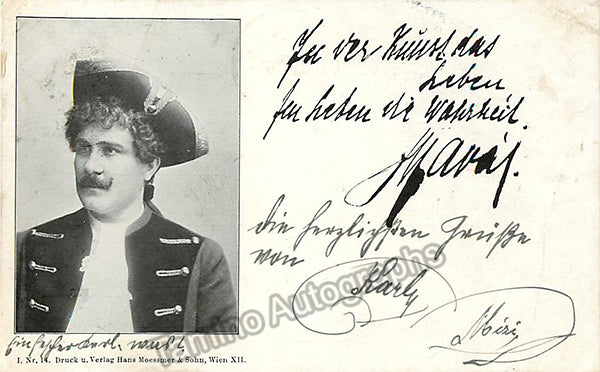 In der Kunst das
Leben
Im Leben die Wahrheit.
die herzlichsten Grüße
von
Karl
Mizi
Ein fescher Kerl. wast
1. Nr. 14. Druck u. Verlag Hans Moessmer & Sohn, Wien XII.
Tamino Autographs